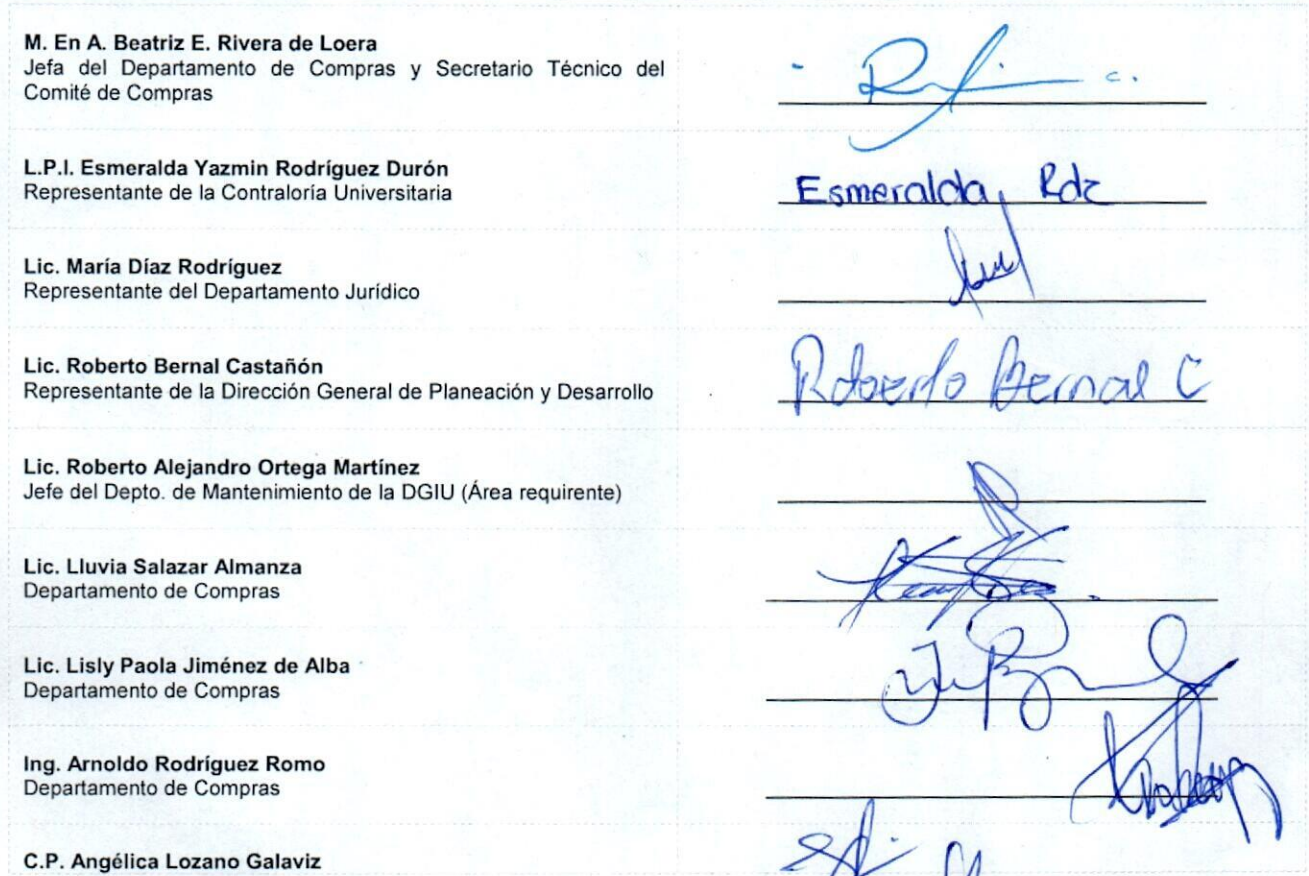 M. En A. Beatriz E. Rivera de Loera
Jefa del Departamento de Compras y Secretario Técnico del
Comité de Compras
L.P.I. Esmeralda Yazmin Rodríguez Durón
Representante de la Contraloría Universitaria
Esmeralda Rdz
Lic. María Díaz Rodríguez
Representante del Departamento Jurídico
Lic. Roberto Bernal Castañón
Representante de la Dirección General de Planeación y Desarrollo
Roberto Bernal C
Lic. Roberto Alejandro Ortega Martínez
Jefe del Depto. de Mantenimiento de la DGIU (Área requirente)
Lic. Lluvia Salazar Almanza
Departamento de Compras
Lic. Lisly Paola Jiménez de Alba
Departamento de Compras
Ing. Arnoldo Rodríguez Romo
Departamento de Compras
C.P. Angélica Lozano Galaviz